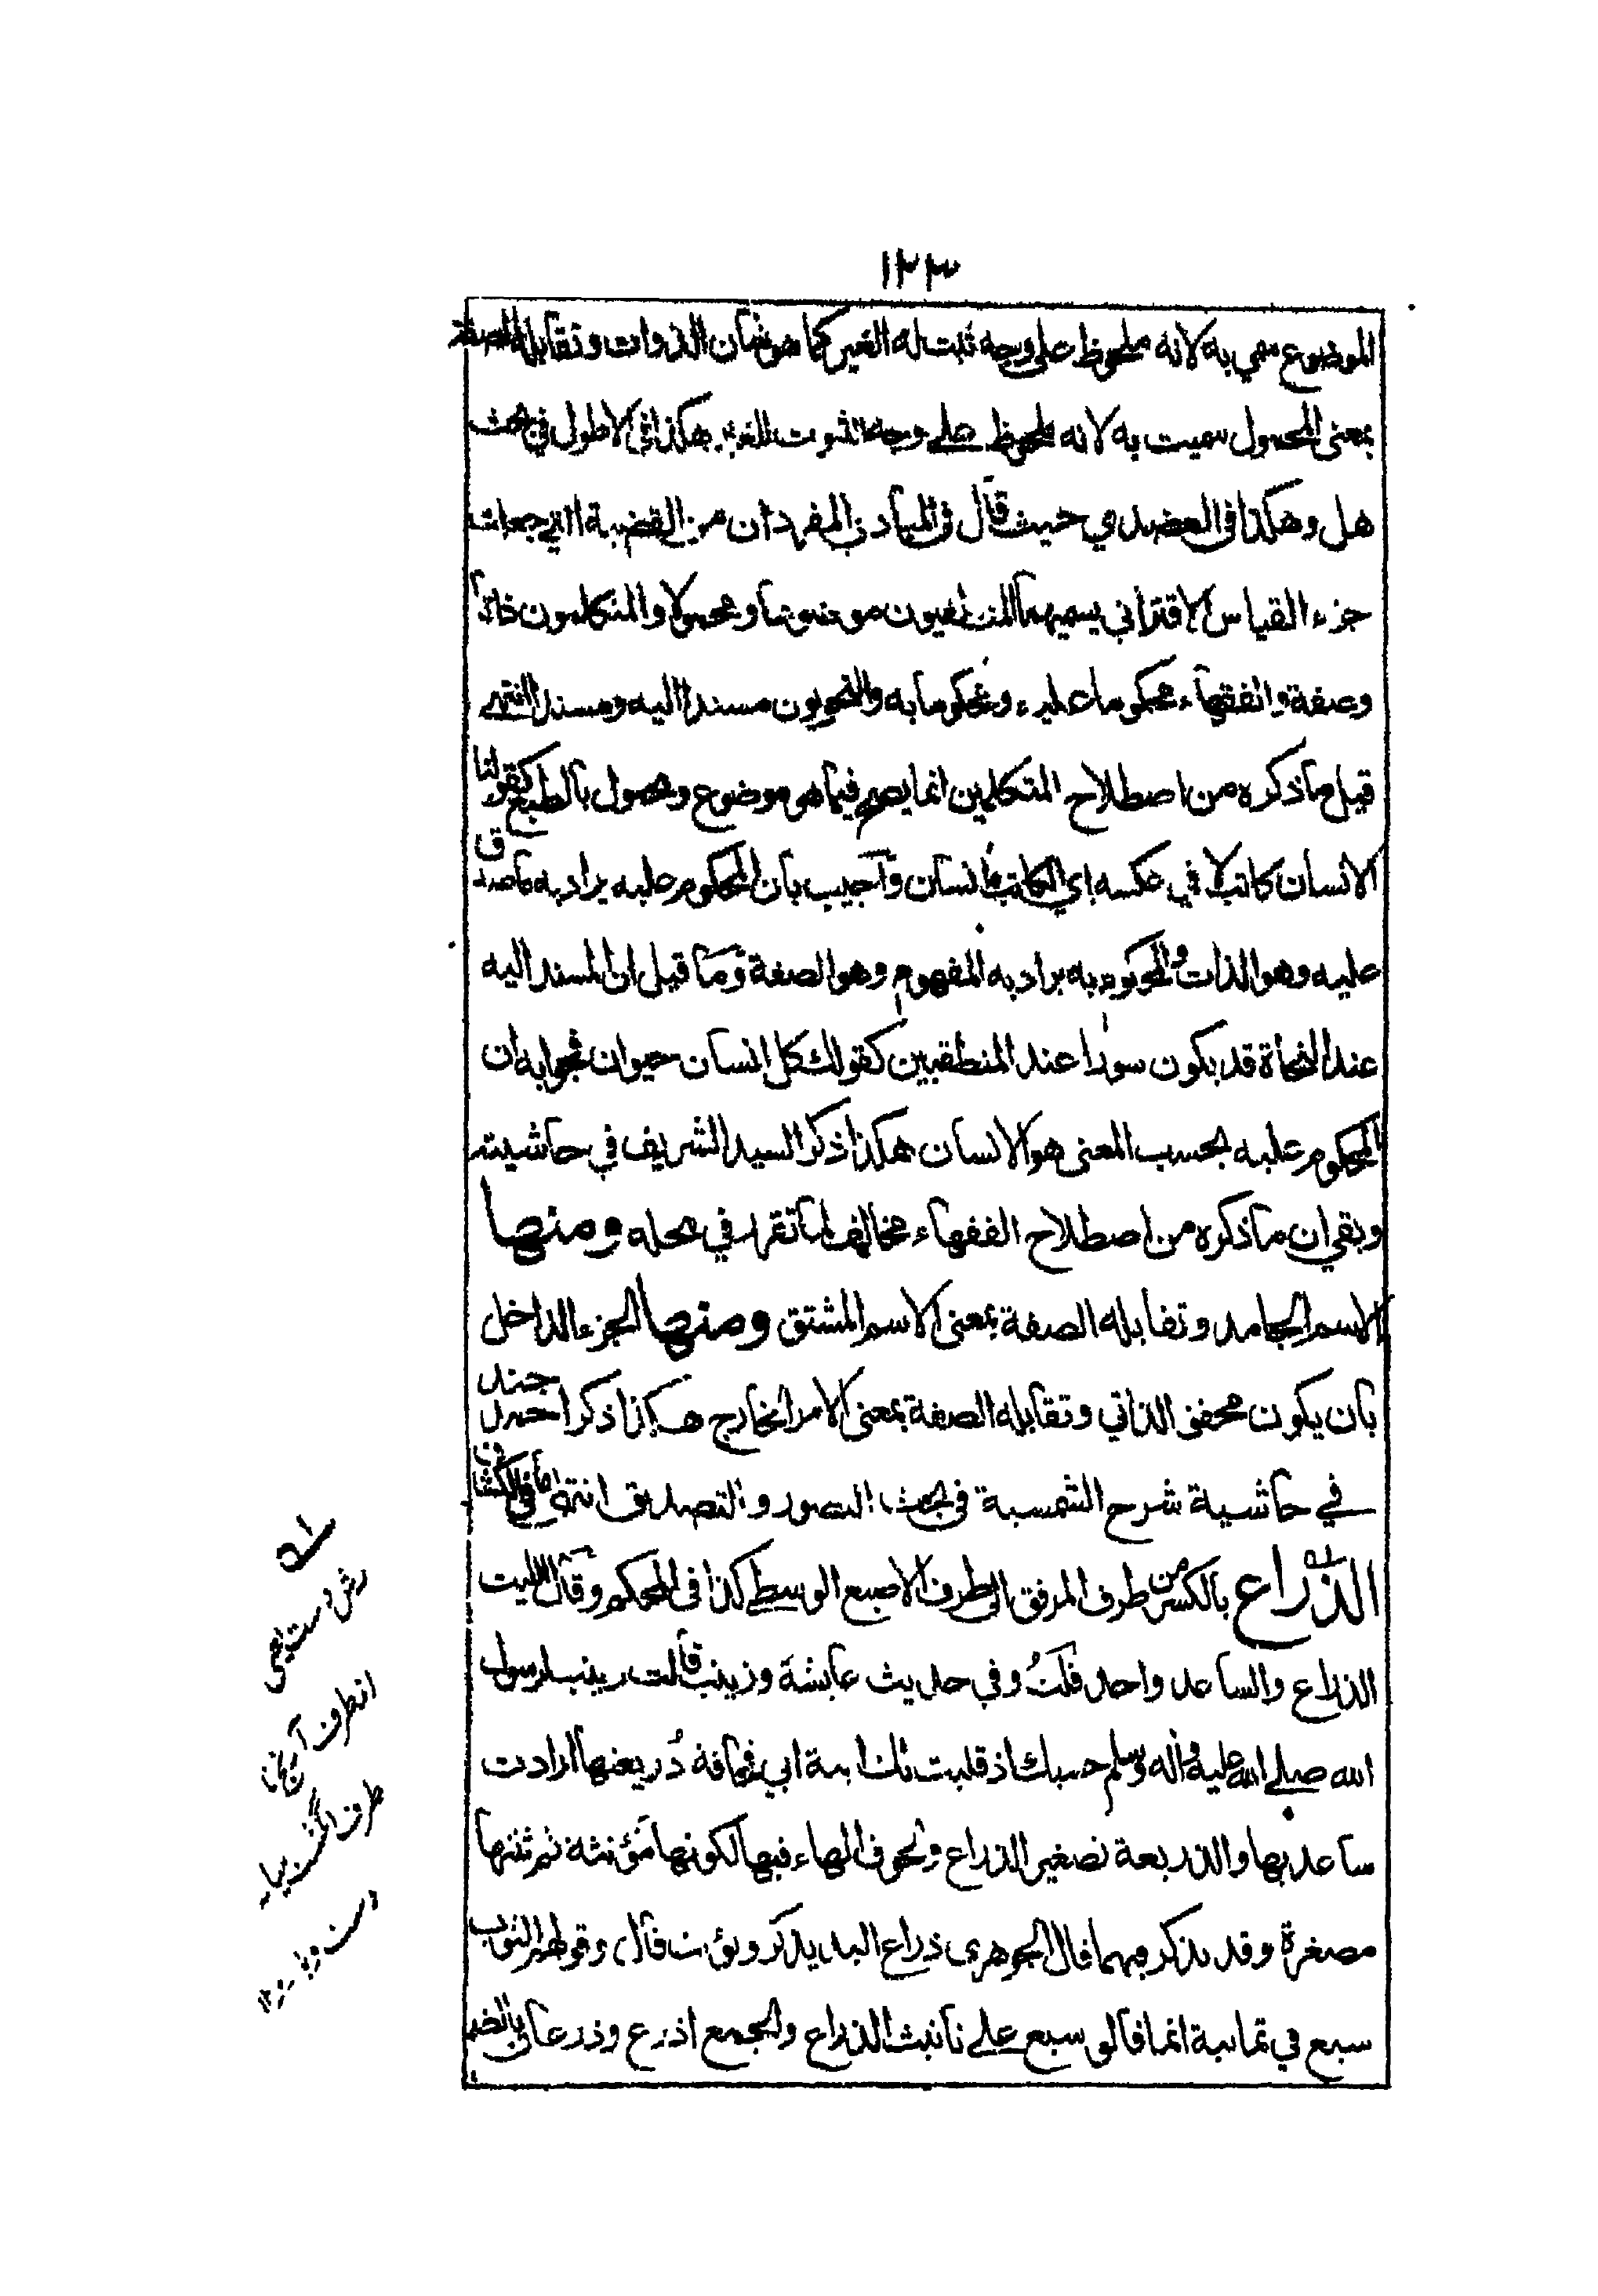 ١٢٣
الموضوع سمي به لانه ملحوظ على وجه ثبت له الغير كما هو شان الذوات وتقابله الصفة
بمعنى المحمول سميت به لانه ملحوظ على وجه الثبوت للغير هكذا في الاطول في بحث
هل وهكذا في العضدي حيث قال في المبادي المفردان من القضية التي جعلت
جزء القياس الاقتراني يسميهما المنطقيون موضوعا ومحمولا والمتكلمون ذاتا
وصفة والفقهاء محكوما عليه ومحكوما به والنحويون مسندا اليه ومسندا انتهى
قيل ما ذكره من اصطلاح المتكلمين انما يصح فيما هو موضوع ومحمول بالطبع كقولنا
الانسان كاتب لا في عكسه اي الكاتب انسان وآجيب بان المحكوم عليه يراد به ما صدق
عليه وهو الذات والمحكوم به يراد به المفهوم وهو الصفة وما قيل ان المسند اليه
عند النحاة قد يكون سورا عند المنطقيين كقولك كل انسان حيوان فجوابه ان
المحكوم عليه بحسب المعنى هو الانسان هكذا ذكر السيد الشريف في حاشيته
وبقي ان ما ذكره من اصطلاح الفقهاء مخالف لما تقرر في محله ومنها
الاسم الجامد وتقابله الصفة بمعنى الاسم المشتق ومنها الجزء الداخل
بان يكون محقق الذاتي وتقابله الصفة بمعنى الامر الخارج هكذا ذكر احمد جند
في حاشية شرح الشمسية في بحث التصور والتصديق انتهى ما في الكشاف
الذراع بالكسر من طرف المرفق الى طرف الاصبع الوسطى كذا في المحكم وقال الليث
الذراع والساعد واحد قلت وفي حديث عايشة وزينب قالت زينب لرسول
الله صلى الله عليه وآله وسلم حسبك اذ قلبت لك ابنة ابي قحافة ذريعتيها ارادت
ساعديها والذريعة تصغير الذراع ولحوق الهاء فيها لكونها مؤنثه ثم ثنتها
مصغرة وقد يذكر فيهما قال الجوهري ذراع اليد يذكر ويؤنث قال وقولهم الثوب
سبع في ثمانية انما قالو سبع على تانيث الذراع والجمع اذرع وذرعان بالضم
رش دست يعنى
از طرف آرنج تا
طرف انگشت ميانه